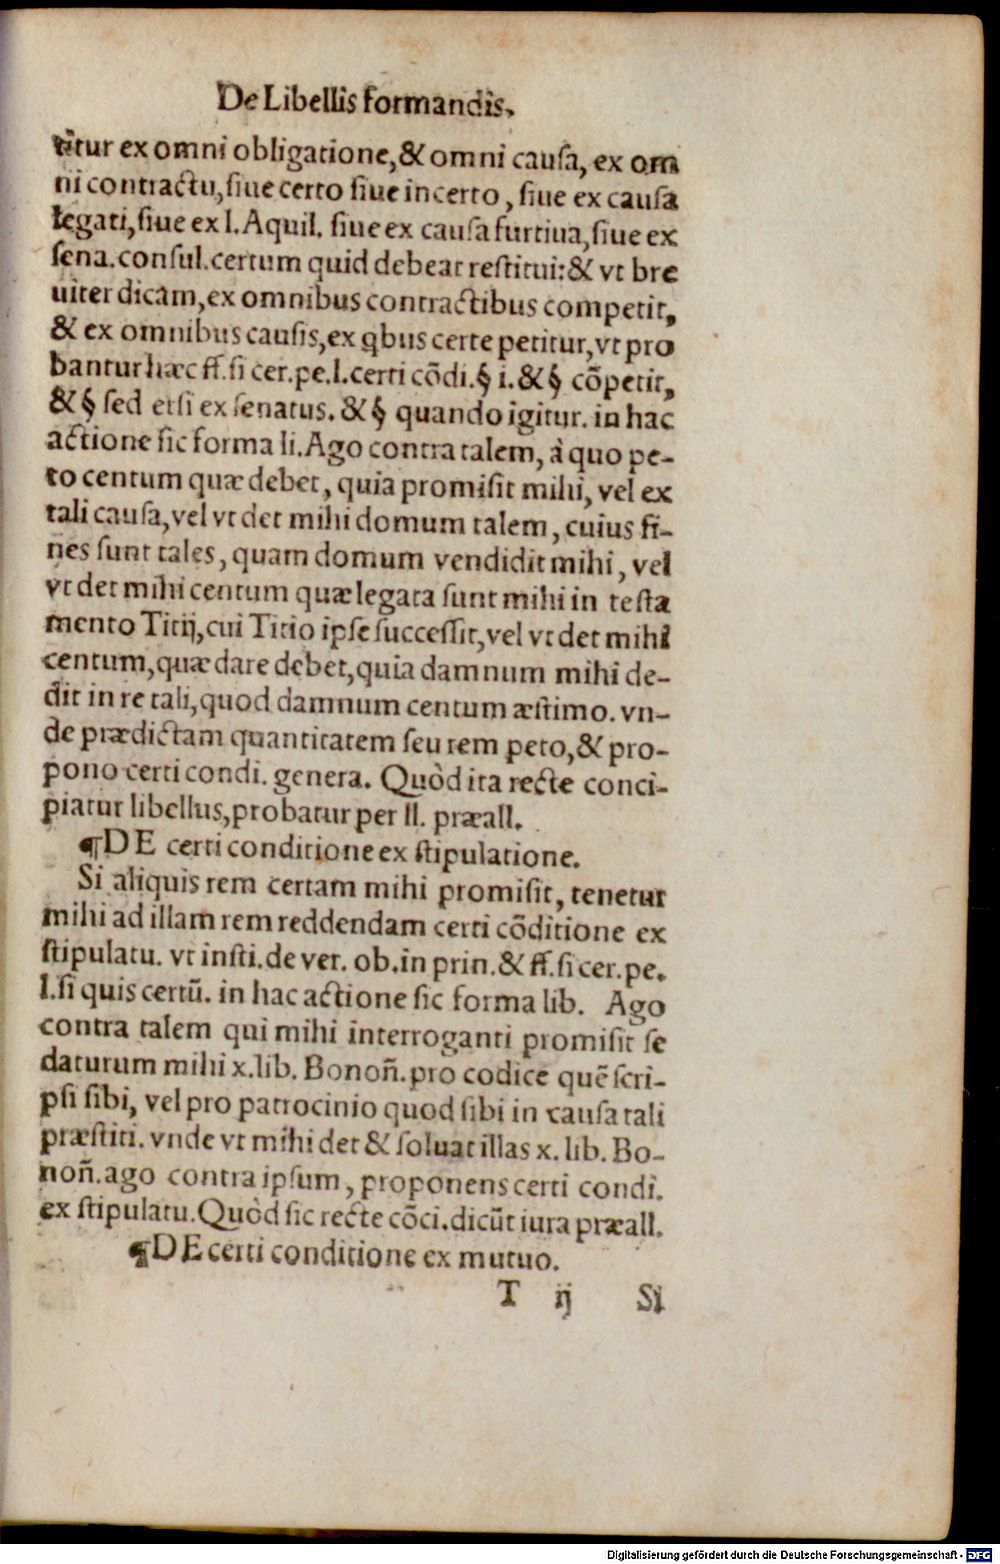 De Libellis formandis.
titur ex omni obligatione, & omni causa, ex om
ni contractu, siue certo siue incerto, siue ex causa
legati, siue ex l. Aquil. siue ex causa furtiua, siue ex
sena. consul. certum quid debeat restitui: & vt bre
uiter dicam, ex omnibus contractibus competit,
& ex omnibus causis, ex qbus certe petitur, vt pro
bantur hæc ff. si cer. pe. l. certi cõdi. § i. & § cõpetit,
& § sed etsi ex senatus. & § quando igitur. in hac
actione sic forma li. Ago contra talem, à quo pe-
to centum quæ debet, quia promisit mihi, vel ex
tali causa, vel vt det mihi domum talem, cuius fi-
nes sunt tales, quam domum vendidit mihi, vel
vt det mihi centum quæ legata sunt mihi in testa
mento Titij, cui Titio ipse successit, vel vt det mihi
centum, quæ dare debet, quia damnum mihi de-
dit in re tali, quod damnum centum æstimo. vn-
de prædictam quantitatem seu rem peto, & pro-
pono certi condi. genera. Quòd ita recte conci-
piatur libellus, probatur per ll. præall.
¶DE certi conditione ex stipulatione.
Si aliquis rem certam mihi promisit, tenetur
mihi ad illam rem reddendam certi cõditione ex
stipulatu. vt insti. de ver. ob. in prin. & ff. si cer. pe.
l. si quis certũ. in hac actione sic forma lib. Ago
contra talem qui mihi interroganti promisit se
daturum mihi x. lib. Bonoñ. pro codice quẽ scri-
psi sibi, vel pro patrocinio quod sibi in causa tali
præstiti. vnde vt mihi det & soluat illas x. lib. Bo-
noñ. ago contra ipsum, proponens certi condi.
ex stipulatu. Quòd sic recte cõci. dicũt iura præall.
¶DE certi conditione ex mutuo.
T ij Si
Digitalisierung gefördert durch die Deutsche Forschungsgemeinschaft - DFG